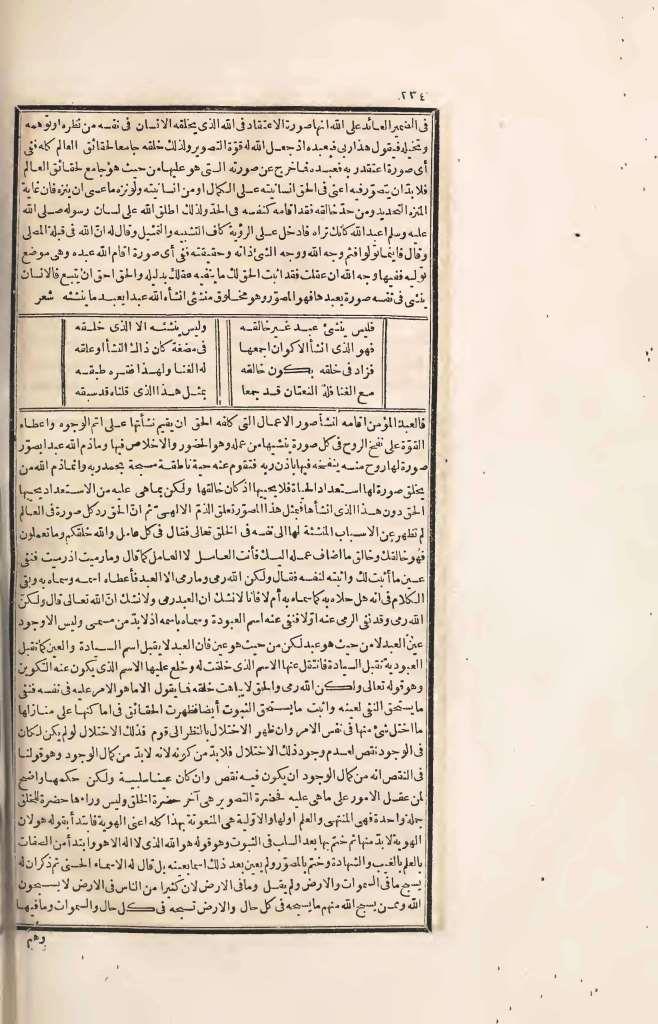 ٢٣٤
فى الضمير العائد على الله انها صورة الاعتقاد فى الله الذى يخلقه الانسان فى نفسه من نظره او توهمه
وتخيله فيقول هذا ربى فيعبده اذ جعل الله له قوّة التصوير ولذلك خلقه جامعا لحقائق العالم كله ففى
أى صورة اعتقد ربه فعبده فما خرج عن صورته التى هو عليها من حيث هو جامع لحقائق العالم
فلا بد ان يتصوّر فيه اعنى فى الحق انسانيته على الكمال او من انسانيته ولو نزه ما عسى ان ينزه فان غاية
المنزه التحديد ومن حدّ خالقه فقد اقامه كنفسه فى الحدّ ولذلك اطلق الله على لسان رسوله صلى الله
عليه وسلم اعبد الله كانك تراه فادخل على الرؤية كاف التشبيه والتمثيل وقال له انّ الله فى قبلة المصلى
وقال فاينما تولوا فثم وجه الله ووجه الشئ ذاته وحقيقته ففى أى صورة اقام الله عبده وهى موضع
توليه ففيها وجه الله ان عقلت فقد اثبت الحق لك ما ينفيه عقلك بدليله والحق احق ان يتبع فالانسان
ينشئ فى نفسه صورة يعبدها فهو المصوّر وهو مخلوق منشئ انشأه الله عبدا يعبد ما ينشئه شعر
فليس ينشئ عبد غير خالقه وليس ينشئه الا الذى خلقه
فهو الذى انشأ الاكوان اجمعها فى مضغة كان ذاك النشأ او علقه
فزاد فى خلقه بكون خالقه له الغنا ولهذا فقره طبقه
مع الغنا فله النعتان قد جمعا بمثل هذا الذى قلناه قد سبقه
فالعبد المؤمن اقامه لنشأ صور الاعمال التى كلفه الحق ان يقيم نشأتها على اتم الوجوه واعطاه
القوّة على نفخ الروح فى كل صورة ينشيها من عمله وهو الحضور والاخلاص فيها وما ذم الله عبدا يصوّر
صورة لها روح منه ينفخه فيها باذن ربه فتقوم عنه حية ناطقة مسبحة بحمد ربه وانما ذم الله من
يخلق صورة لها استعداد الحياة فلا يحييها اذ كان خالقها ولكن بما هى عليه من الاستعداد يحييها
الحق دون هذا الذى انشأها فبمثل هذا المصوّر تعلق الذمّ الالهىّ ثم انّ الحق ردّ كل صورة فى العالم
لم تظهر عن الاسباب المنشئة لها الى نفسه فى الخلق تعالى فقال فى كل عامل والله خلقكم وما تعملون
فهو خالقك وخالق ما اضاف عمله اليك فأنت العامل لا العامل كما قال وما رميت اذ رميت فنفى
عين ما أثبت لك واثبته لنفسه فقال ولكن الله رمى وما رمى الا العبد فأعطاه اسمه وسماه به وبقى
الكلام فى انه هل حلاه به كما سماه به أم لا فانا لا نشك ان العبد رمى ولا نشك انّ الله تعالى قال ولكنّ
الله رمى وقد نفى الرمى عنه اوّلا فنفى عنه اسم العبودة وسماه باسمه اذ لا بدّ من مسمى وليس الا وجود
عين العبد لا من حيث هو عبد لكن من حيث هو عين فان العبد لا يقبل اسم السيادة والعين كما تقبل
العبودية تقبل السيادة فانتقل عنها الاسم الذى خلقت له وخلع عليها الاسم الذى يكون عنه التكوين
وهو قوله تعالى ولكن الله رمى والحق لا يباهت خلقه فما يقول الا ما هو الامر عليه فى نفسه فنفى
ما يستحق النفى لعينه واثبت ما يستحق الثبوت أيضا فظهرت الحقائق فى اماكنها على منازلها
ما اختل شئ منها فى نفس الامر وان ظهر الاختلال بالنظر الى قوم فذلك الاختلال لو لم يكن لكان
فى الوجود نقص لعدم وجود ذلك الاختلال فلا بدّ من كونه لانه لا بدّ من كمال الوجود وهو قولنا
فى النقص انه من كمال الوجود ان يكون فيه نقص وان كان عينا سلبية ولكن حكمها واضح
لمن عقل الامور على ما هى عليه فحضرة التصوير هى آخر حضرة الخلق وليس وراءها حضرة للخلق
جملة واحدة فهى المنتهى والعلم اولها والاوّلية هى المنعوتة بهذا كله اعنى الهوية فابتدأ بقوله هو لان
الهوية لا بدّ منها ثم ختم بها بعد السلب فى الثبوت وهو قوله هو الله الذى لا اله الا هو وابتدأ من الصفات
بالعلم بالغيب والشهادة وختم بالمصوّر ولم يعين بعد ذلك اسما بعينه بل قال له الاسماء الحسنى ثم ذكر ان له
يسبح ما فى السموات والارض ولم يقل وما فى الارض لان كثيرا من الناس فى الارض لا يسبحون
الله وممن يسبح الله منهم ما يسبحه فى كل حال والارض تسبحه فى كل حال والسموات وما فيها
وهم